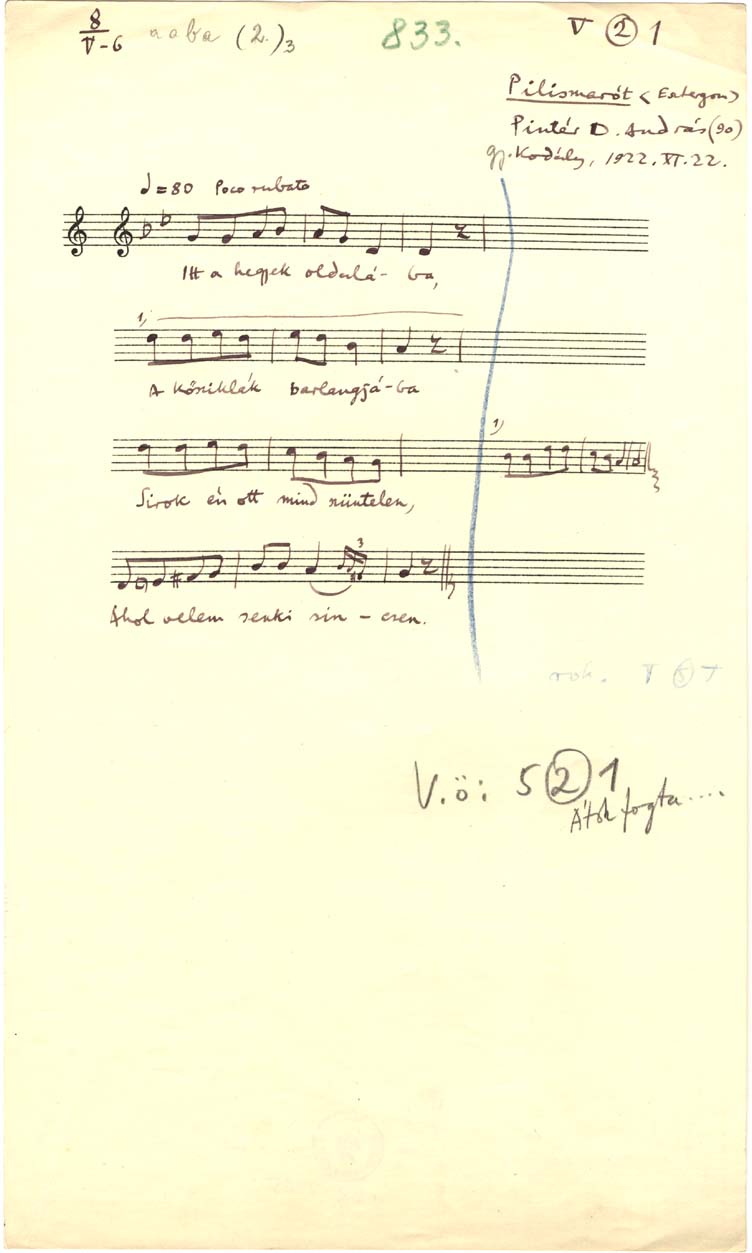 8
V-6 aaba (2.)3 833. V 2 1
Pilismarót (Esztergom)
Pintér D. András (90)
gy. Kodály, 1922. XI. 22.
♩=80 Poco rubato
Itt a hegyek oldalá- ba,
1)
A kősziklák barlangjá-ba
1)
Sirok én ott mind szüntelen,
3
Ahol velem senki sin - csen.
V.ö: 5 2 1
Átok fogta....